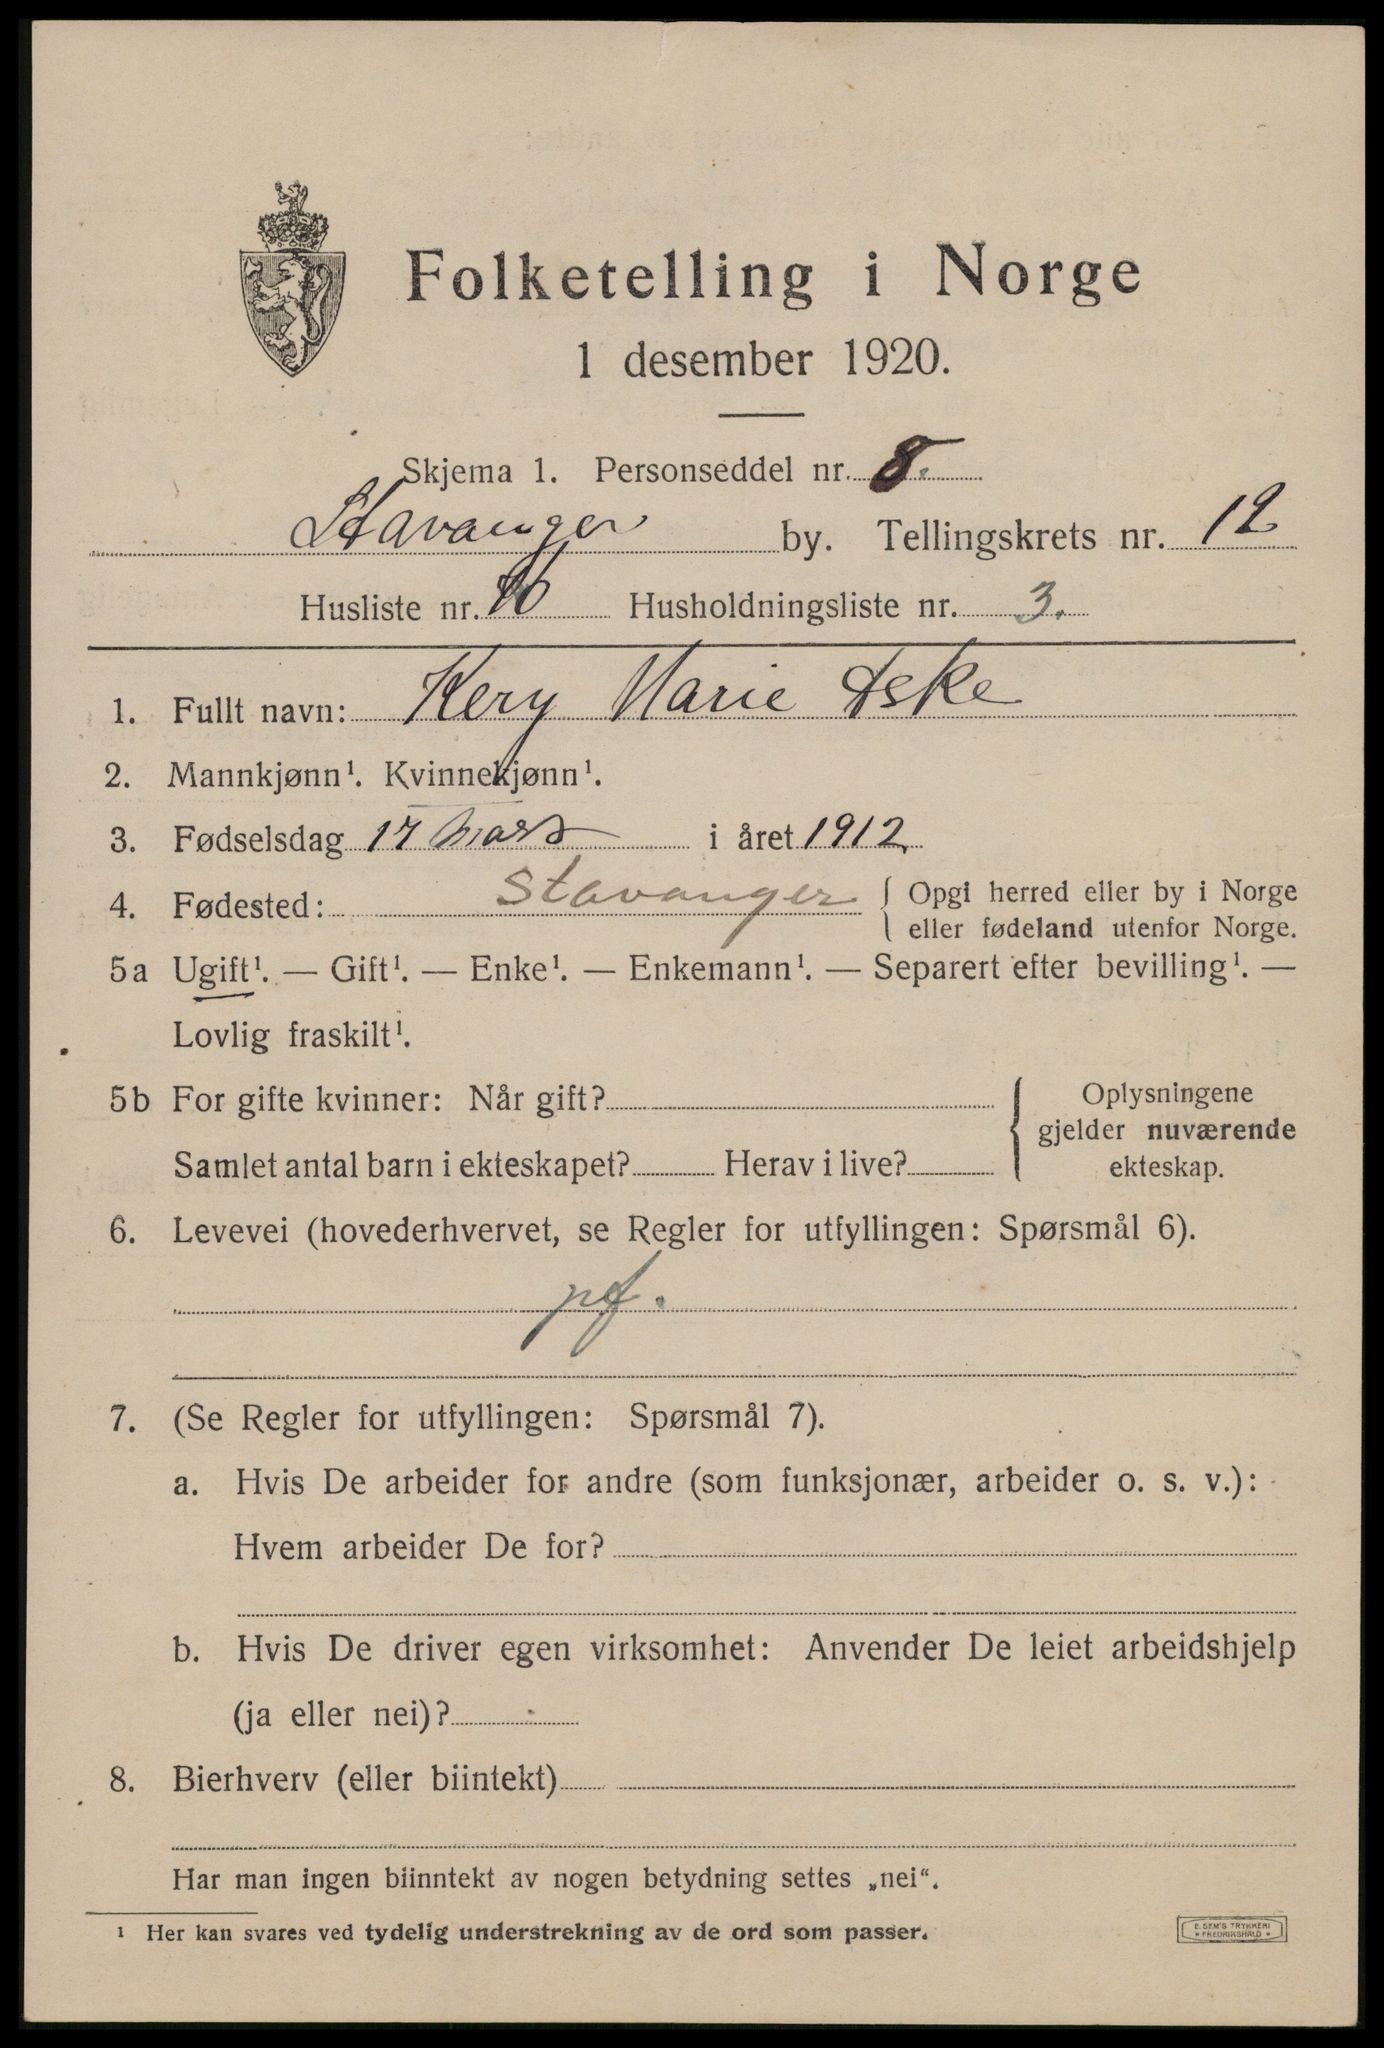 Folketelling i Norge
1 desember 1920.
Skjema 1. Personseddel nr. 8.
Stavanger by. Tellingskrets nr. 12
Husliste nr. Husholdningsliste nr. 3.
1. Fullt navn: Kery Marie Aske
2. Mannkjønn¹. Kvinnekjønn¹.
3. Fødselsdag 17 Mars i året 1912
4. Fødested: Stavanger { Opgi herred eller by i Norge
eller fødeland utenfor Norge.
5a Ugift¹. — Gift¹. — Enke¹. — Enkemann¹. — Separert efter bevilling¹. —
Lovlig fraskilt¹.
5b For gifte kvinner: Når gift?
Samlet antal barn i ekteskapet? Herav i live?
{ Oplysningene
gjelder nuværende
ekteskap.
6. Levevei (hovederhvervet, se Regler for utfyllingen: Spørsmål 6).
pf.
7. (Se Regler for utfyllingen: Spørsmål 7).
a. Hvis De arbeider for andre (som funksjonær, arbeider o. s. v.):
Hvem arbeider De for?
b. Hvis De driver egen virksomhet: Anvender De leiet arbeidshjelp
(ja eller nei)?
8. Bierhverv (eller biintekt)
Har man ingen biinntekt av nogen betydning settes „nei“.
¹ Her kan svares ved tydelig understrekning av de ord som passer.
E. SEM'S TRYKKERI
* FREDRIKSHALD *